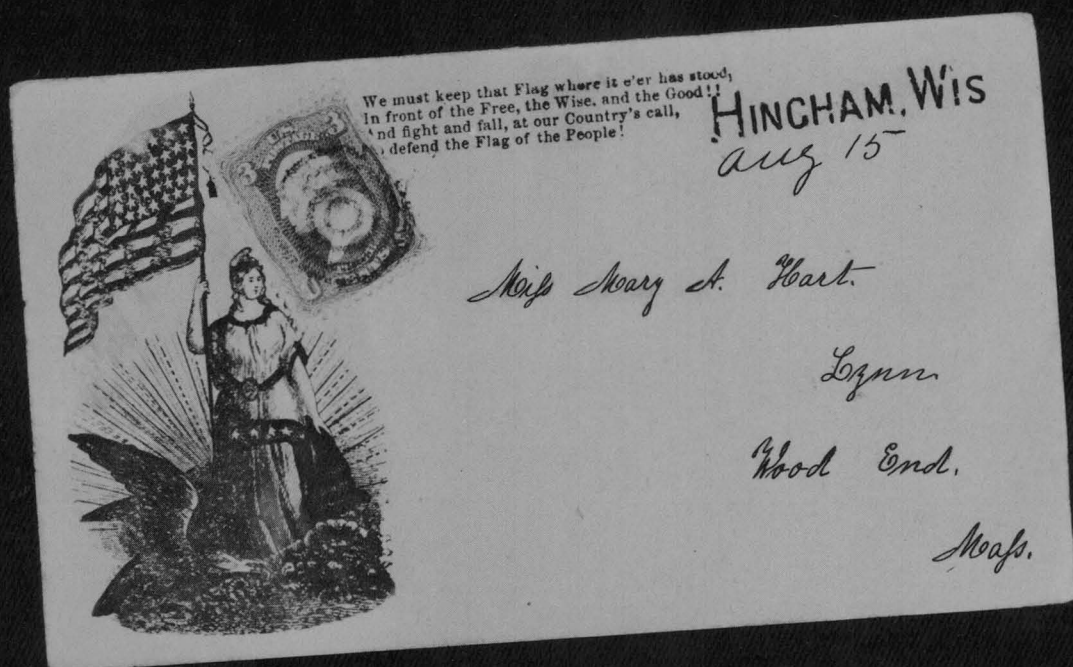 We must keep that Flag where it e'er has stood,
In front of the Free, the Wise, and the Good!!
And fight and fall, at our Country's call,
defend the Flag of the People!
HINGHAM, WIS
aug 15
3 3
Miſs Mary A. Hart.
Lynn
Wood End.
Maſs.